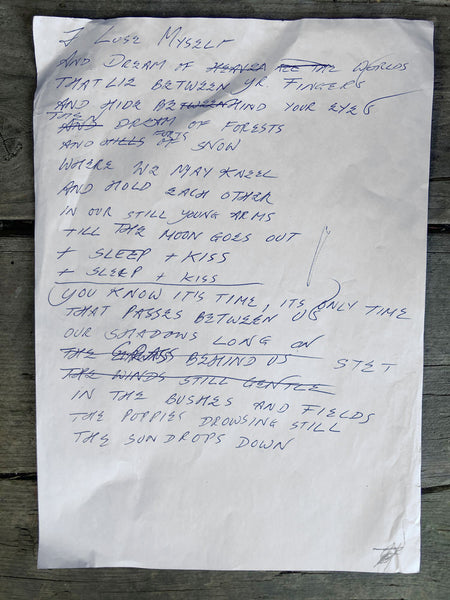 I LOSE MYSELF
AND DREAM OF HEAVEN ALL THE WORLDS
THAT LIE BETWEEN YR. FINGERS
AND HIDE BETWEEN HIND YOUR EYES
THE
AND DREAM OF FORESTS
AND HILLS FORTS OF SNOW
WHERE WE MAY KNEEL
AND HOLD EACH OTHER
IN OUR STILL YOUNG ARMS
TILL THE MOON GOES OUT
+ SLEEP + KISS
+ SLEEP + KISS
YOU KNOW IT'S TIME, ITS ONLY TIME
THAT PASSES BETWEEN US
OUR SHADOWS LONG ON
THE GRASS BEHIND US STET
THE WINDS STILL GENTLE
IN THE BUSHES AND FIELDS
THE POPPIES DROWSING STILL
THE SUN DROPS DOWN